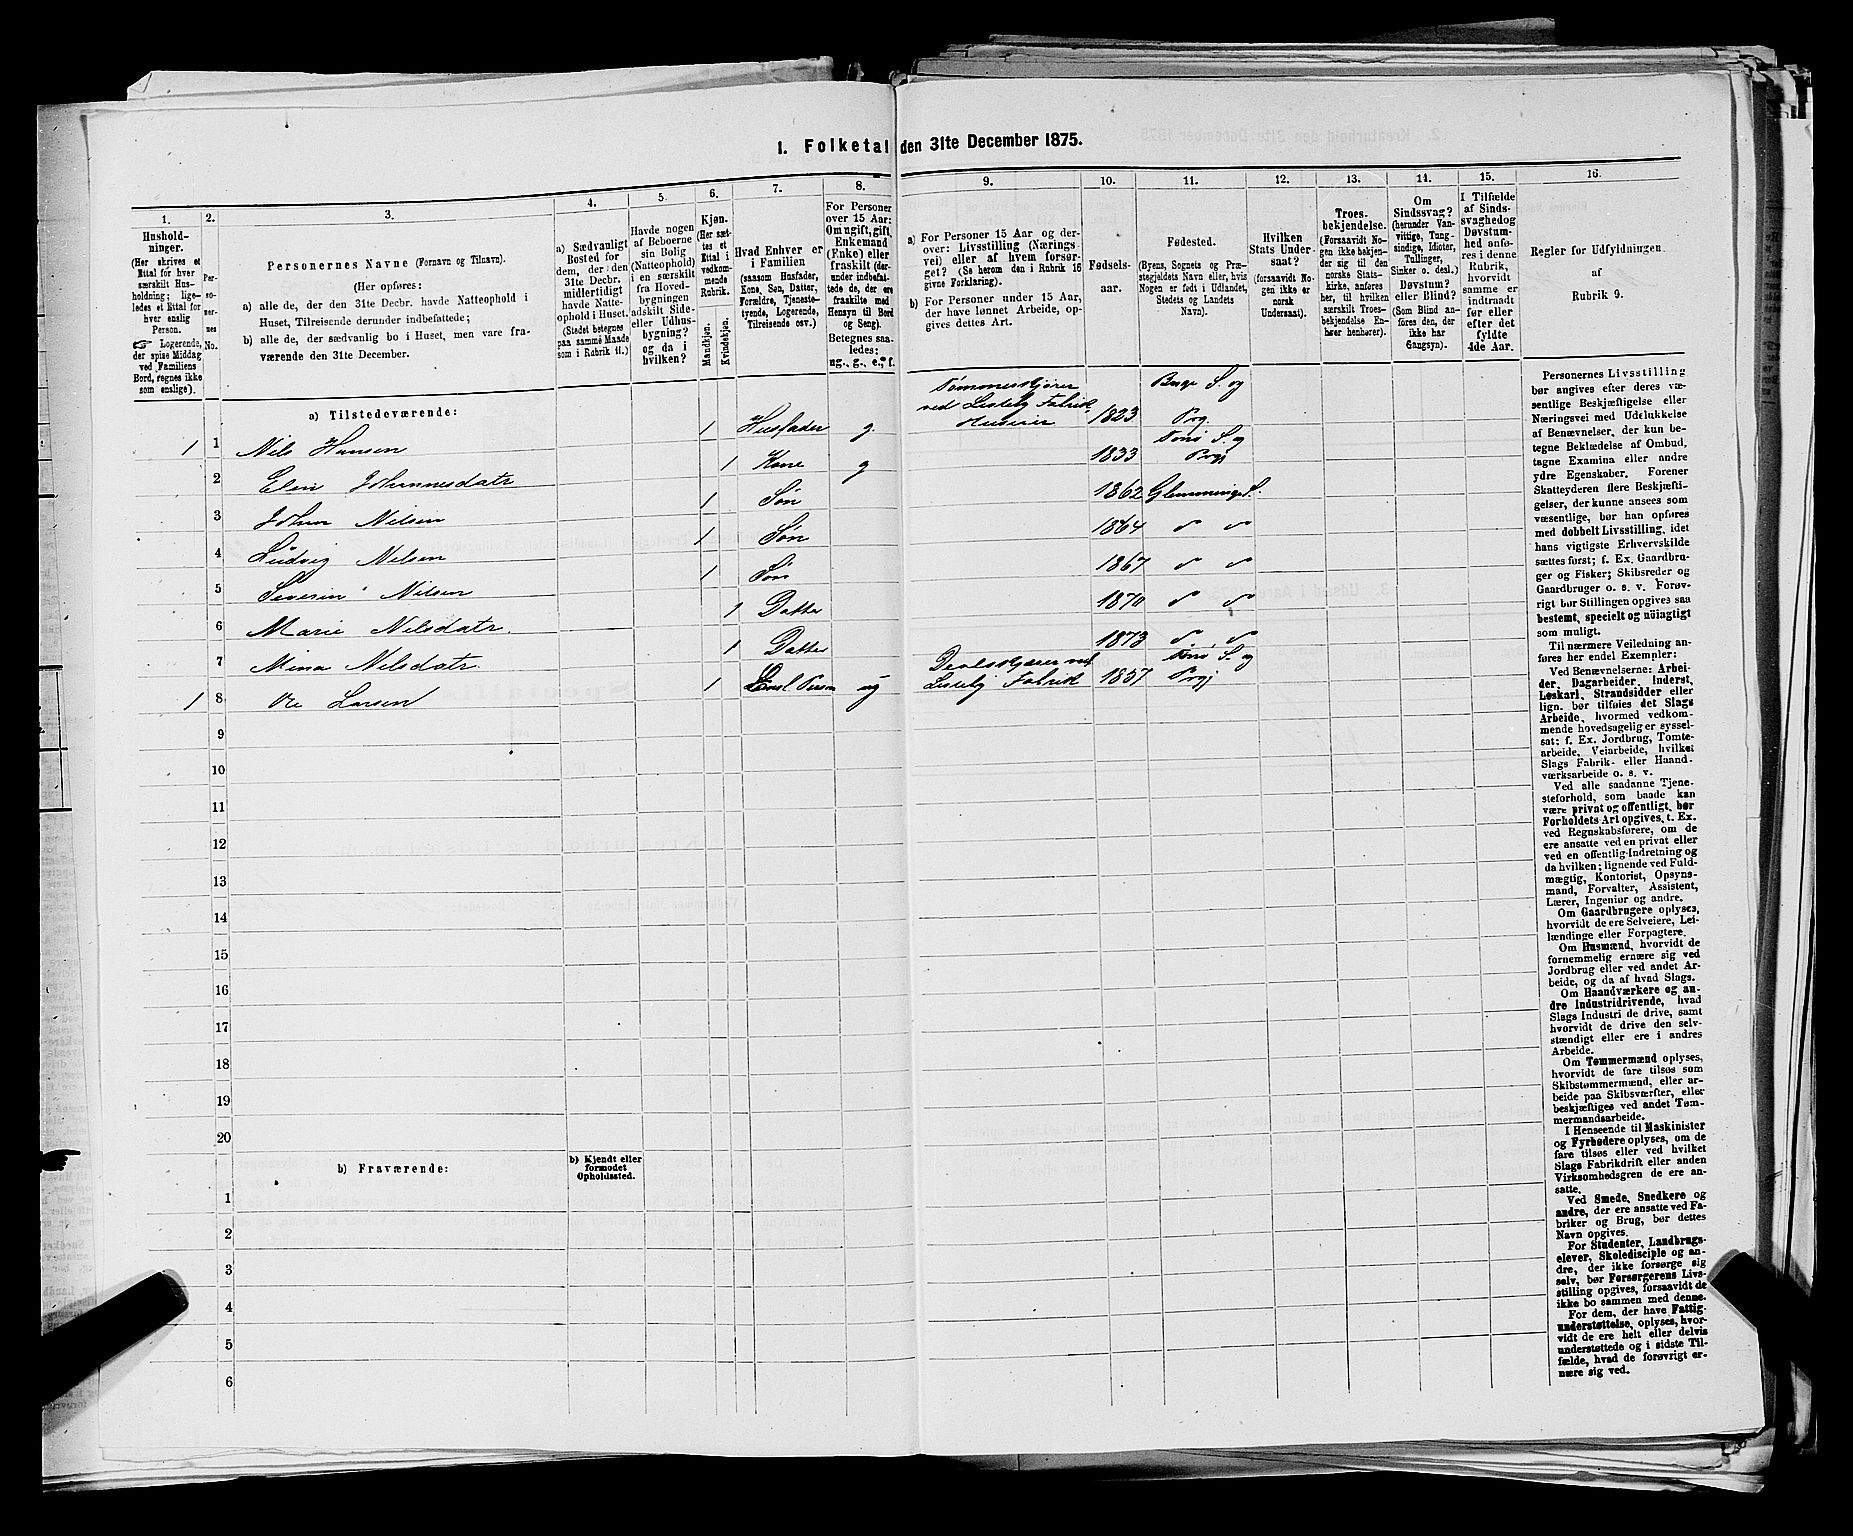 1. Folketal den 31te December 1875.
1.
Hushold-
ninger.
(Her skrives et
Ettal for hver
særskilt Hus-
holdning; lige-
ledes et Ettal for
hver enslig
Person.
☞ Logerende,
der spise Middag
ved Familiens
Bord, regnes ikke
som enslige).
2.
Per-
so-
ner-
nes
No.
3.
Personernes Navne (Fornavn og Tilnavn).
(Her opføres:
a) alle de, der den 31te Decbr. havde Natteophold i
Huset, Tilreisende derunder indbefattede;
b) alle de, der sædvanlig bo i Huset, men vare fra-
værende den 31te December.
4.
a) Sædvanligt
Bosted for
dem, der den
31te Decbr.
midlertidigt
havde Natte-
ophold i Huset.
(Stedet betegnes
paa samme Maade
som i Rubrik 11.)
5.
Havde nogen
af Beboerne
sin Bolig
(Natteophold)
i en særskilt
fra Hoved-
bygningen
adskilt Side-
eller Udhus-
bygning?
og da i
hvilken?
6.
Kjøn.
(Her sæt-
tes et
Ettal i
vedkom-
mende
Rubrik.
Mandkjøn.
Kvindekjøn.
7.
Hvad Enhver er
i Familien
(saasom Husfader,
Kone, Søn, Datter,
Forældre, Tjeneste-
tyende, Logerende,
Tilreisende osv.)
8.
For Personer
over 15 Aar:
Om ugift, gift,
Enkemand
(Enke) eller
fraskilt (der-
under indbefat-
tede de, der ere
fraskilte med
Hensyn til Bord
og Seng).
Betegnes saa-
ledes:
ug., g., e., f.
9.
a) For Personer 15 Aar og der-
over: Livsstilling (Nærings-
vei) eller af hvem forsør-
get? (Se herom den i Rubrik 16
givne Forklaring).
b) For Personer under 15 Aar,
der have lønnet Arbeide, op-
gives dettes Art.
10.
Fødsels-
aar.
11.
Fødested.
(Byens, Sognets og Præ-
stegjeldets Navn eller, hvis
Nogen er født i Udlandet,
Stedets og Landets
Navn).
12.
Hvilken
Stats Under-
saat?
(forsaavidt No-
gen ikke er
norsk
Undersaat).
13.
Troes-
bekjendelse.
(Forsaavidt No-
gen ikke bekjen-
der sig til den
norske Stats-
kirke, anføres
her, til hvilken
særskilt Troes-
bekjendelse En-
hver henhører).
14.
Om
Sindssvag?
(herunder Van-
vittige, Tung-
sindige, Idioter,
Tullinger,
Sinker o. desl.)
Døvstum?
eller Blind?
(Som Blind an-
føres den, der
ikke har
Gangsyn).
15.
I Tilfælde
af Sinds-
svaghed og
Døvstum-
hed anfø-
res i denne
Rubrik,
hvorvidt
samme er
indtraadt
før eller
efter det
fyldte
4de Aar.
16.
Regler for Udfyldningen
af
Rubrik 9.
a) Tilstedeværende:
1 1 Nils Hansen 1 Husfader g Tømmerkjører
ved Lisleby Fabrik,
Huseier 1823 S. og
Prg.
2 Johannesdatr 1 Kone g 1833 S. og
Prgj
3 Johan Nilsen 1 Søn 1862 Glemminge S.
4 Ludvig Nilsen 1 Søn 1864 " "
5 Severin Nilsen 1 Søn 1867 " "
6 Marie Nilsdatr. 1 Datter 1870 " "
7 Mina Nilsdatr. 1 Datter 1873 " "
1 8 Ole Larsen 1 Ensl Person ug
Lisleby Fabrik 1857 S. og
Prgj
9
10
11
12
13
14
15
16
17
18
19
20
b) Fraværende:
b) Kjendt eller
formodet
Opholdssted.
1
2
3
4
5
6
Personernes Livsstilling
bør angives efter deres væ-
sentlige Beskjæftigelse eller
Næringsvei med Udelukkelse
af Benævnelser, der kun be-
tegne Beklædelse af Ombud,
tagne Examina eller andre
ydre Egenskaber. Forener
Skatteyderen flere Beskjæfti-
gelser, der kunne ansees som
væsentlige, bør han opføres
med dobbelt Livsstilling, idet
hans vigtigste Erhvervskilde
sættes først; f. Ex. Gaardbru-
ger og Fisker; Skibsreder og
Gaardbruger o. s. v. Forøv-
rigt bør Stillingen opgives saa
bestemt, specielt og nöiagtigt
som muligt.
Til nærmere Veiledning an-
føres her endel Exempler:
Ved Benævnelserne: Arbei-
der, Dagarbeider, Inderst,
Løskarl, Strandsidder eller
lign. bør tilføies det Slags
Arbeide, hvormed vedkom-
mende hovedsagelig er syssel-
sat; f. Ex. Jordbrug, Tomte-
arbeide, Veiarbeide, hvilket
Slags Fabrik- eller Haand-
værksarbeide o. s. v.
Ved alle saadanne Tjene-
steforhold, som baade kan
være privat og offentligt, bør
Forholdets Art opgives, t. Ex.
ved Regnskabsførere, om de
ere ansatte ved en privat eller
ved en offentlig Indretning og
da hvilken; lignende ved Fuld-
mægtig, Kontorist, Opsyns-
mand, Forvalter, Assistent,
Lærer, Ingeniør og andre.
Om Gaardbrugere oplyses,
hvorvidt de ere Selveiere, Lei-
lændinge eller Forpagtere.
Om Husmænd, hvorvidt de
fornemmelig ernære sig ved
Jordbrug eller ved andet Ar-
beide, og da af hvad Slags.
Om Haandværkere og an-
dre Industridrivende, hvad
Slags Industri de drive, samt
hvorvidt de drive den selv-
stændigt eller ere i andres
Arbeide.
Om Tømmermænd oplyses,
hvorvidt de fare tilsøs som
Skibstømmermænd, eller ar-
beide paa Skibsværfter, eller
beskjæftiges ved andet Tøm-
mermandsarbeide.
I Henseende til Maskinister
og Fyrbødere oplyses, om de
fare tilsøs eller ved hvilket
Slags Fabrikdrift eller anden
Virksomhedsgren de ere an-
satte.
Ved Smede, Snedkere og
andre, der ere ansatte ved Fa-
briker og Brug, bør dettes
Navn opgives.
For Studenter, Landbrugs-
elever, Skoledisciple og an-
dre, der ikke forsørge sig
selv, bør Forsørgerens Livs-
stilling opgives, forsaavidt de
ikke bo sammen med denne.
For dem, der have Fattig-
understøttelse, oplyses, hvor-
vidt de ere helt eller delvis
understøttede og i sidste Til-
fælde, hvad de forøvrigt er-
nære sig ved.